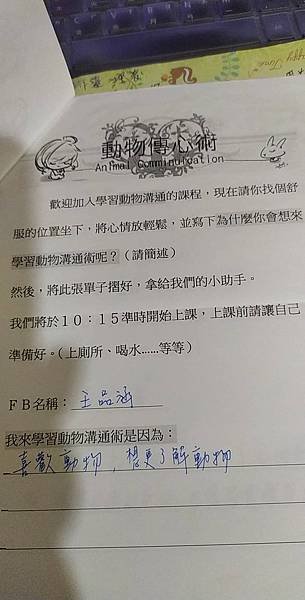 動物傳心術
Animal Communication
歡迎加入學習動物溝通的課程，現在請你找個舒
服的位置坐下，將心情放輕鬆，並寫下為什麼你會想來
學習動物溝通術呢？（請簡述）
然後，將此張單子摺好，拿給我們的小助手。
我們將於１０：１５準時開始上課，上課前請讓自己
準備好。（上廁所、喝水……等等）
ＦＢ名稱：王品涵
我來學習動物溝通術是因為：
喜歡動物，想更了解動物